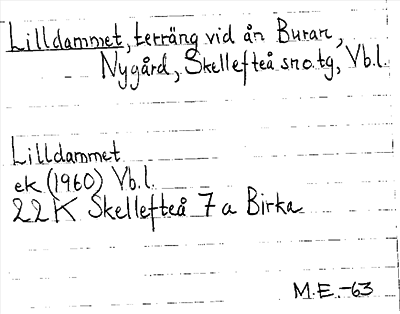 Lilldammet, terräng vid ån Buran,
Nygård, Skellefteå sn o. tg, Vb.l.
Lilldammet
ek (1960) Vb.l.
22K Skellefteå 7 a Birka
M.E.-63